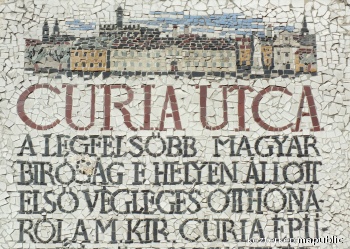 CURIA UTCA
A LEGFELSŐBB MAGYAR
BÍRÓSÁG E HELYEN ÁLLOTT
ELSŐ VÉGLEGES OTTHONA
RÓL A M. KIR. CURIA ÉPÜ
mapublic